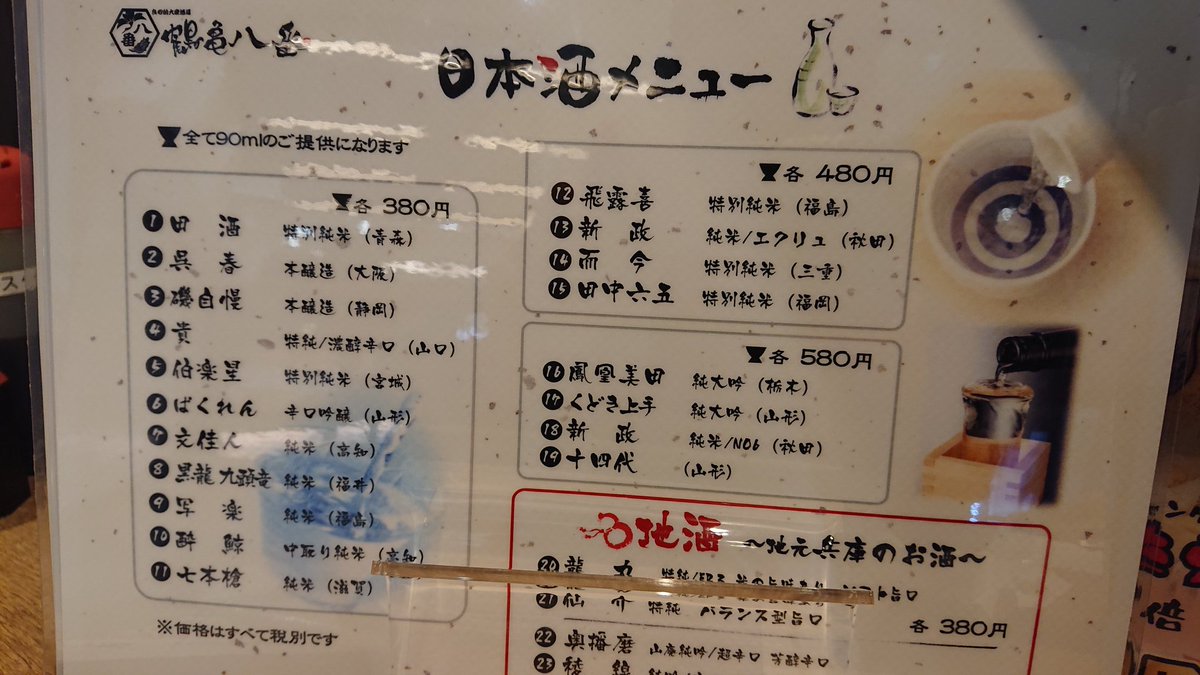 鶴亀八番
日本酒メニュー
全て90mlのご提供になります
各 380円
1 田酒 特別純米 (青森)
2 呉春 本醸造 (大阪)
3 磯自慢 本醸造 (静岡)
4 貴 特純/濃醇辛口 (山口)
5 伯楽星 特別純米 (宮城)
6 ばくれん 辛口吟醸 (山形)
7 文佳人 純米 (高知)
8 黒龍 九頭竜 純米 (福井)
9 写楽 純米 (福島)
10 酔鯨 中取り純米 (高知)
11 七本槍 純米 (滋賀)
※価格はすべて税別です
各 480円
12 飛露喜 特別純米 (福島)
13 新政 純米/エクリュ (秋田)
14 而今 特別純米 (三重)
15 田中六五 特別純米 (福岡)
各 580円
16 鳳凰美田 純大吟 (栃木)
17 くどき上手 純大吟 (山形)
18 新政 純米/NO6 (秋田)
19 十四代 (山形)
地酒 ～地元兵庫のお酒～
20 龍力 特純
21 仙介 特純 バランス型旨口
各 380円
22 奥播磨 山廃純吟/超辛口 芳醇辛口
23
倍